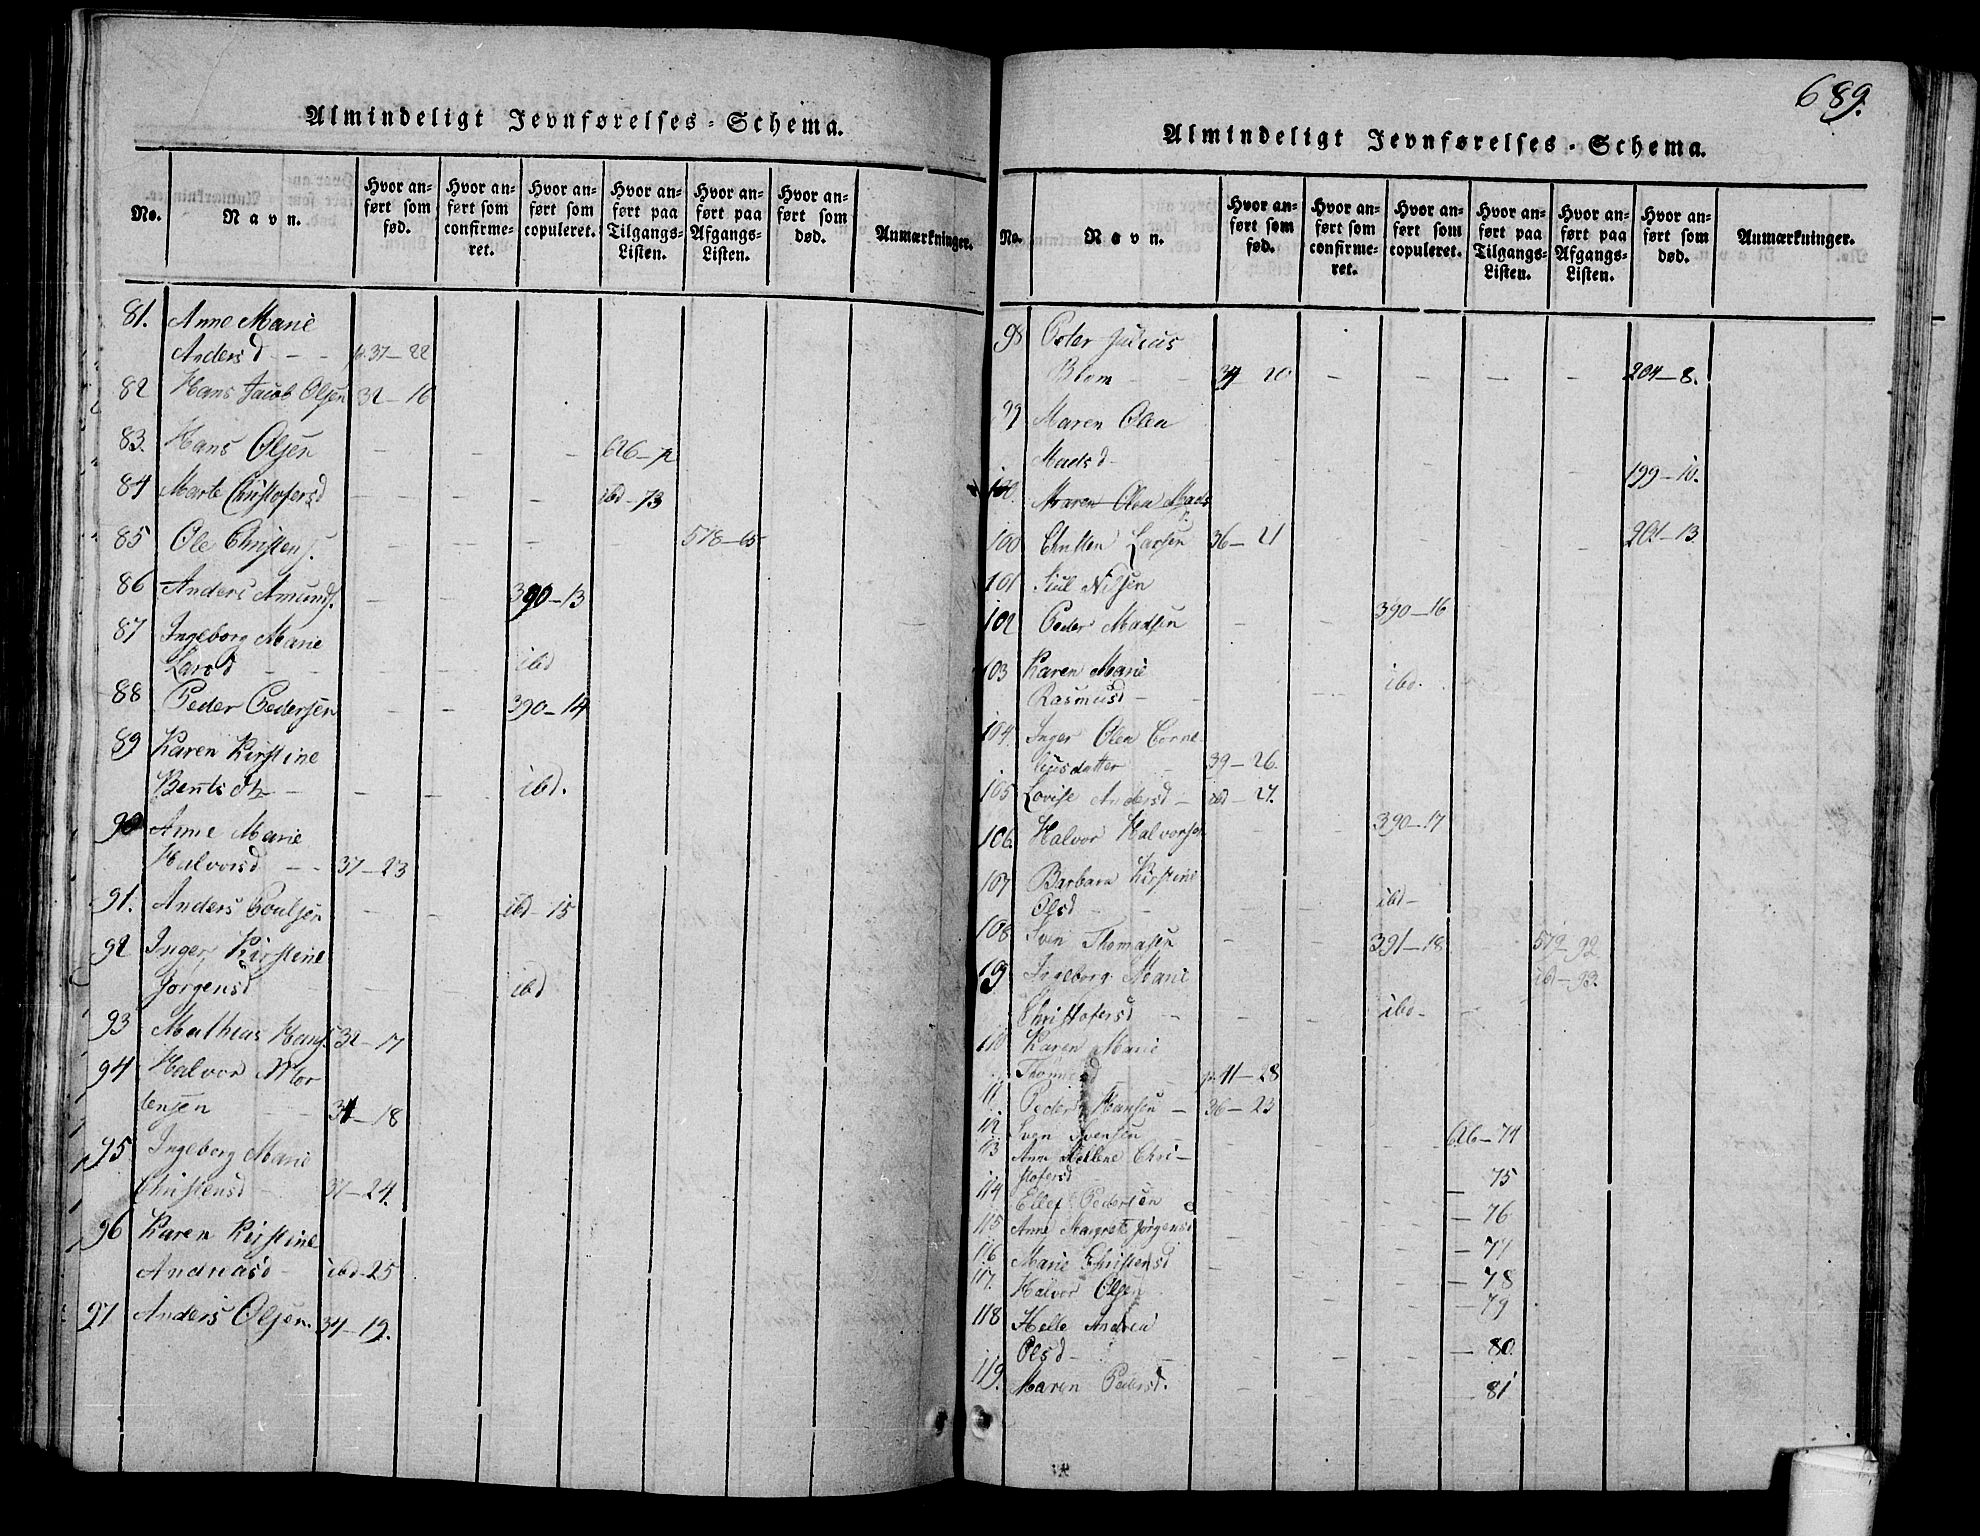 Almindeligt Jevnførelses-Schema.
No.
Navn.
Hvor anført som fød.
Hvor anført som confirmeret.
Hvor anført som copuleret.
Hvor anført paa Tilgangs-Listen.
Hvor anført paa Afgangs-Listen.
Hvor anført som død.
Anmærkninger.
81. Anne Marie
Andersd - - p. 37-22
82 Hans Jacob Olsen 32-16
83. Hans Olsen - - - 626-72
84 Marte Christofersd - - - ibd-73
85 Ole Christens. - - - - 578-65
86 Anders Amunds. - - 390-13
87 Ingeborg Marie
Larsd - - - ibd
88 Peder Pedersen - - 390-14
89 Karen Kirstine
Bentsdtr - - - ibd.
90 Anne Marie
Halvorsd - - 37-23
91. Anders Poulsen - - ibd-15
92 Inger Kirstine
Jorgensd - - - ibd
93 Mathias Hans. 32-17
94 Halvor Mor
tensen - - 34-18
95 Ingeborg Marie
Christensd - 37-24.
96 Karen Kirstine
Andreasd - ibd-25
97 Anders Olsen. 34-19.
689.
Almindeligt Jevnførelses-Schema.
No.
Navn.
Hvor anført som fød.
Hvor anført som confirmeret.
Hvor anført som copuleret.
Hvor anført paa Tilgangs-Listen.
Hvor anført paa Afgangs-Listen.
Hvor anført som død.
Anmærkninger.
98 Peter Julius
Blom - - 34 20 - - - - 204-8.
99 Maren Olea
Madsd - - - - - - 199-10.
100. Maren Olea Mads
100 Larsen 36-21 - - - - 201-13
101 Nilsen
102 Peder Madsen - - 390-16
103 Karen Marie
Rasmusd - - - ibd.
104. Inger Olea Corne-
liusdatter - 39-26.
105 Lovise Andersd - ibd-27.
106. Halvor Halvorsen - - 390-17
107 Barbara Kirstine
Olsd - - - - ibd-
108 Sven Thomasen - - 391-18 - 579-92
109 Ingeborg Marie ibd-93.
Christofersd - - - ibd- -
110 Karen Marie
- - p. 41-28
11 Peder Hansen - 36-23
112 Sven Svensen - - - - 626-74
13 Anne Hellene Chri-
stofersd - 75
114 Ellef Pedersen - - - - 76
115 Anne Margrete Jørgensd - - - - 77
116 Marie Christensd - - - - 78
117. Halvor Olsen - - - - 79
118 Helle Andrea
Olsd - - - - - 80.
119. Maren Pedersd. - - - - 81